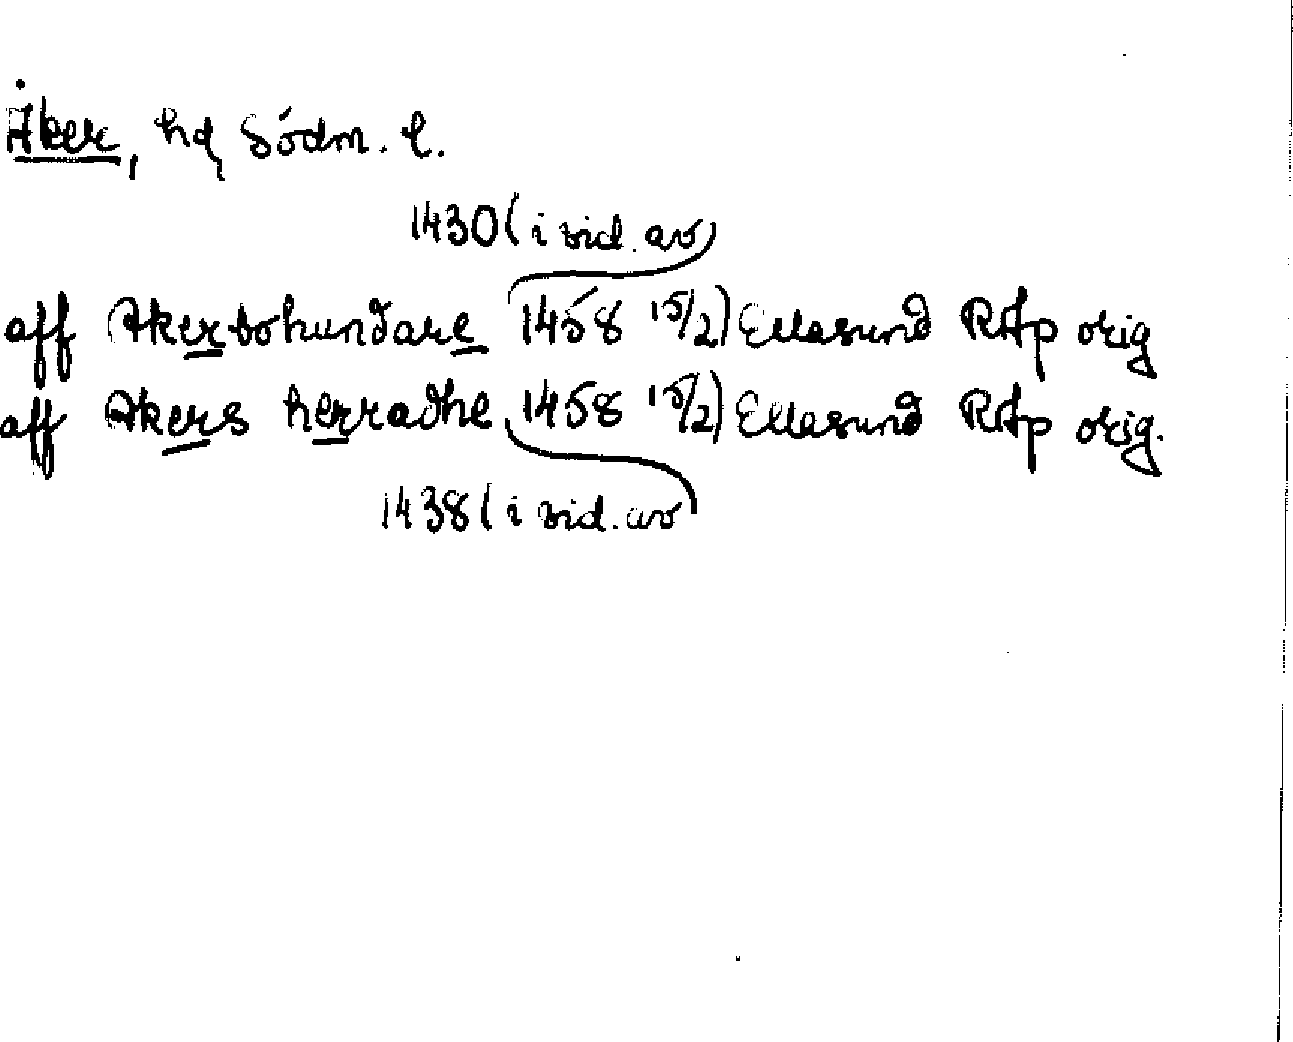 Åker, hd Södm. l.
1430 (i vid. av
aff Akerbohundare 1458 15/2) Ellasund RAp orig
aff Akers herradhe 1458 15/2) Ellasund RAp orig.
1438 (i vid. av